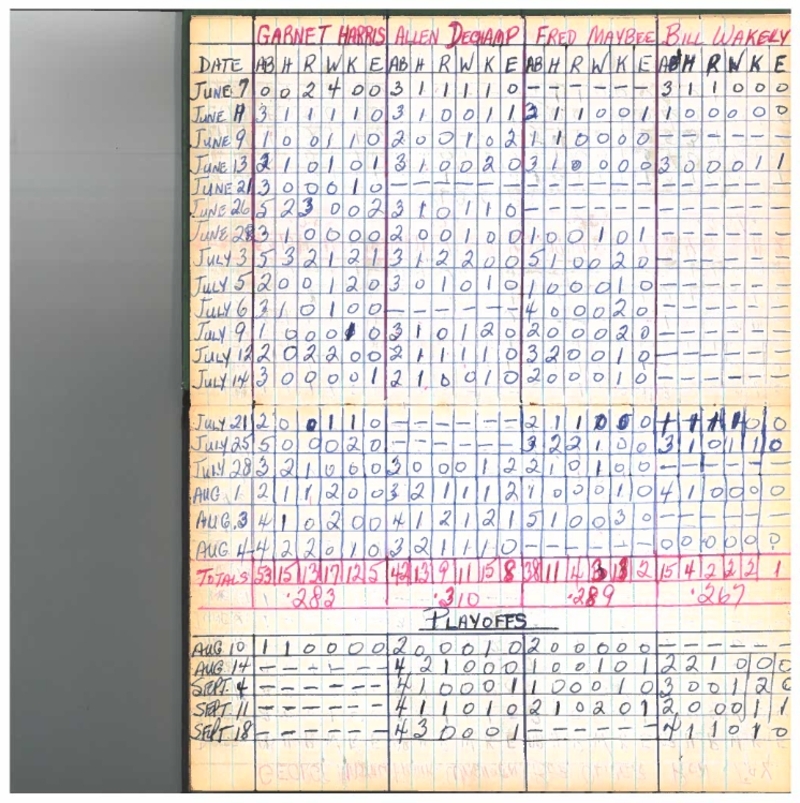 GARNET HARRIS ALLEN DECHAMP FRED MAYBEE BILL WAKELY
DATE AB H R W K E AB H R W K E AB H R W K E AB H R W K E
JUNE 7 0 0 2 4 0 0 3 1 1 1 1 0 - - - - - - 3 1 1 0 0 0
JUNE 3 1 1 1 1 0 3 1 0 0 1 1 1 1 0 0 1 1 0 0 0 0 0
JUNE 9 1 0 0 1 1 0 2 0 0 1 0 2 1 1 0 0 0 0 - - - - - -
JUNE 13 2 1 0 1 0 1 3 1 0 0 2 0 3 1 0 0 0 0 3 0 0 0 1 1
JUNE 21 3 0 0 0 1 0 - - - - - - - - - - - - - - - - - -
JUNE 26 5 2 3 0 0 2 3 1 0 1 1 0 - - - - - - - - - - - -
JUNE 28 3 1 0 0 0 0 2 0 0 1 0 0 1 0 0 1 0 1 - - - - - -
JULY 3 5 3 2 1 2 1 3 1 2 2 0 0 5 1 0 0 2 0 - - - - - -
JULY 5 2 0 0 1 2 0 3 0 1 0 1 0 1 0 0 0 1 0 - - - - - -
JULY 6 3 1 0 1 0 0 - - - - - - 4 0 0 0 2 0 - - - - - -
JULY 9 1 0 0 0 1 0 3 1 0 1 2 0 2 0 0 0 2 0 - - - - - -
JULY 12 2 0 2 2 0 0 2 1 1 1 1 0 3 2 0 0 1 0 - - - - - -
JULY 14 3 0 0 0 0 1 2 1 0 0 1 0 2 0 0 0 1 0 - - - - - -
JULY 21 2 0 0 1 1 0 - - - - - - 2 1 1 0 0 0 0 0
JULY 25 5 0 0 0 2 0 - - - - - - 3 2 2 1 0 0 3 1 0 1 1 0
JULY 28 3 2 1 0 0 0 3 0 0 0 1 2 2 1 0 1 0 0 - - - - - -
AUG. 1 2 1 1 2 0 0 3 2 1 1 1 2 1 0 0 0 1 0 4 1 0 0 0 0
AUG. 3 4 1 0 2 0 0 4 1 2 1 2 1 5 1 0 0 3 0 - - - - - -
AUG 4 4 2 2 0 1 0 3 2 1 1 1 0 - - - - - - 0 0 0 0 0
TOTALS 53 15 13 17 12 5 42 13 9 11 15 8 38 11 4 3 13 2 15 4 2 2 2 1
.283 .310 .289 .267
PLAYOFFS
AUG 10 1 1 0 0 0 0 2 0 0 0 1 0 2 0 0 0 0 0 - - - - - -
AUG 14 - - - - - - 4 2 1 0 0 0 1 0 0 1 0 1 2 2 1 0 0 0
SEPT. 4 - - - - - - 4 1 0 0 0 1 1 0 0 0 1 0 3 0 0 1 2
SEPT. 11 - - - - - - 4 1 1 0 1 0 2 1 0 2 0 1 2 0 0 0 1 1
SEPT 18 - - - - - - 4 3 0 0 0 1 - - - - - - 4 1 1 0 1 0